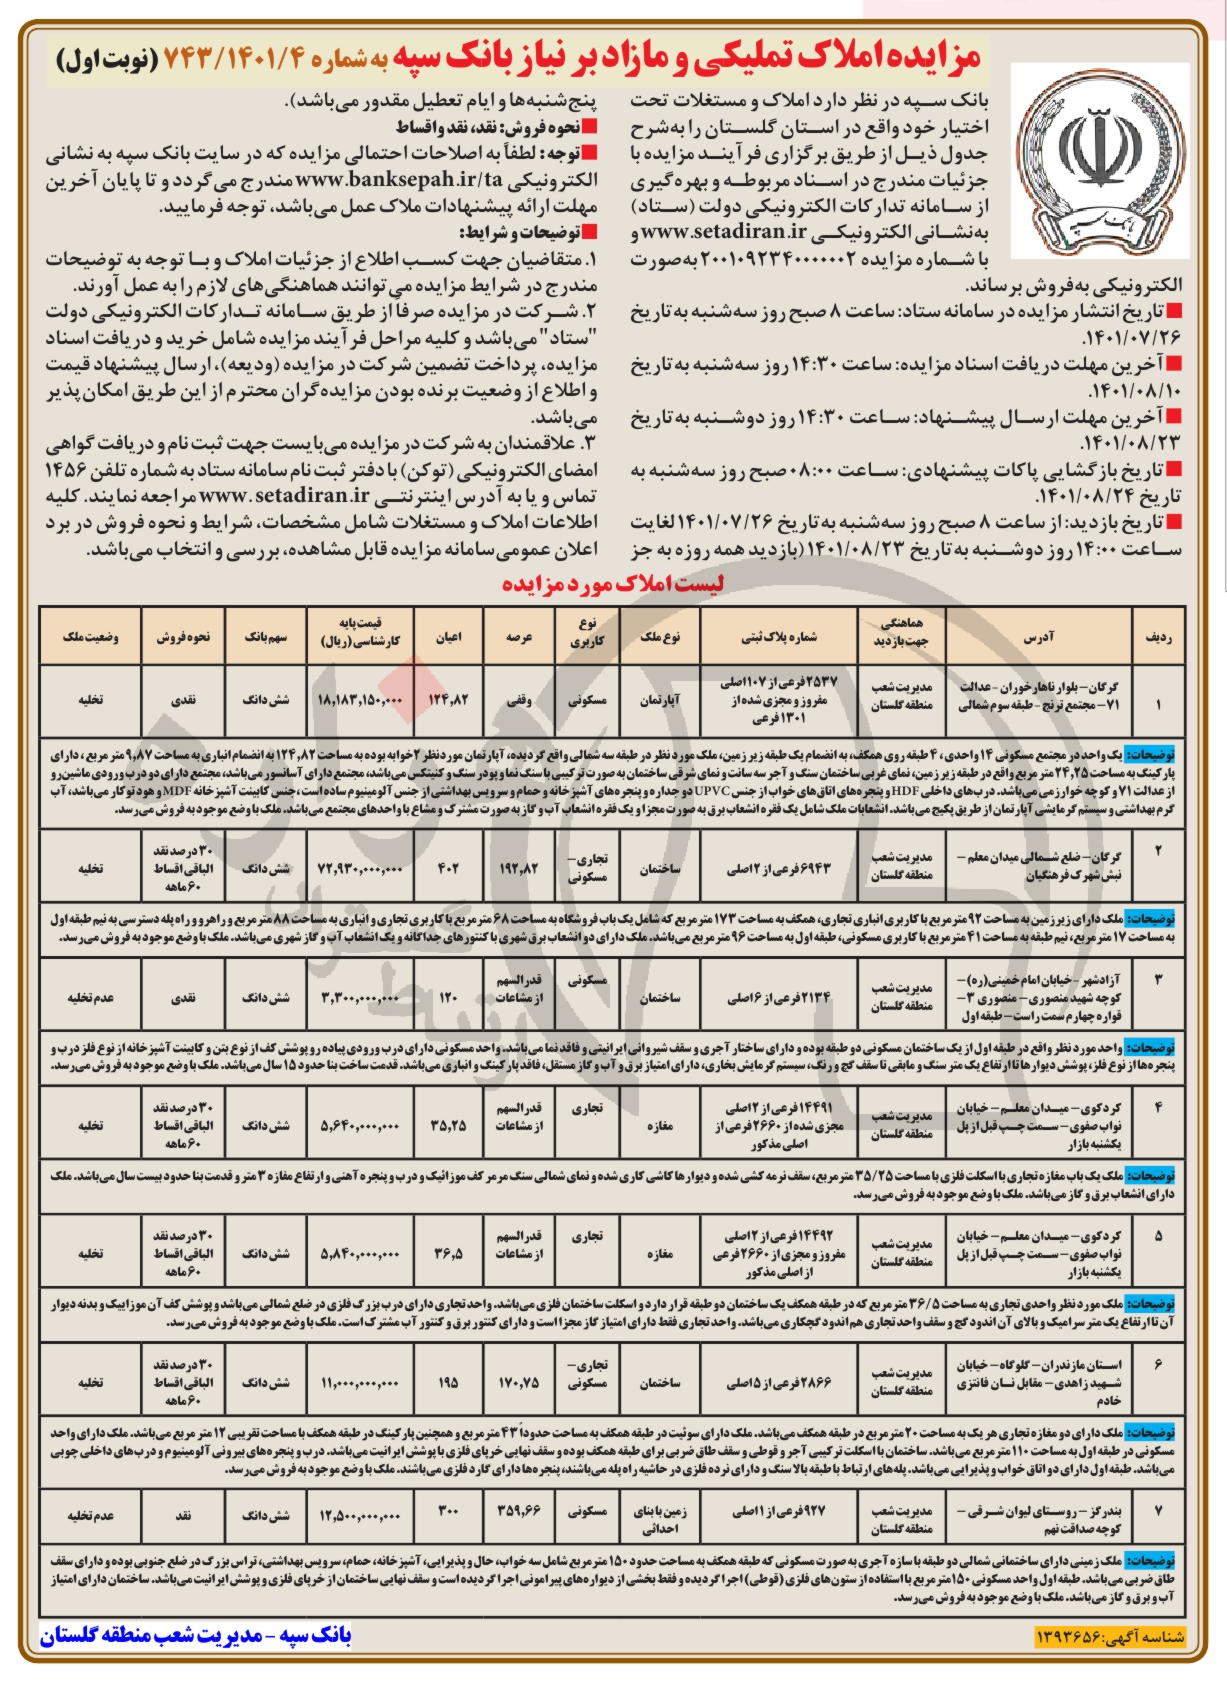 مزایده املاک تملیکی و مازاد بر نیاز بانک سپه به شماره ۷۴۳/۱۴۰۱/۴ (نوبت اول)
بانک سپه در نظر دارد املاک و مستغلات تحت
اختیار خود واقع در استان گلستان را به‌شرح
جدول ذیل از طریق برگزاری فرآیند مزایده با
جزئیات مندرج در اسناد مربوطه و بهره‌گیری
از سامانه تدارکات الکترونیکی دولت (ستاد)
به‌نشانی الکترونیکی www.setadiran.ir و
با شماره مزایده ۲۰۰۱۰۹۲۳۴۰۰۰۰۰۰۲ به‌صورت
الکترونیکی به‌فروش برساند.
■ تاریخ انتشار مزایده در سامانه ستاد: ساعت ۸ صبح روز سه‌شنبه به تاریخ
۱۴۰۱/۰۷/۲۶.
■ آخرین مهلت دریافت اسناد مزایده: ساعت ۱۴:۳۰ روز سه‌شنبه به تاریخ
۱۴۰۱/۰۸/۱۰.
■ آخرین مهلت ارسال پیشنهاد: ساعت ۱۴:۳۰ روز دوشنبه به تاریخ
۱۴۰۱/۰۸/۲۳.
■ تاریخ بازگشایی پاکات پیشنهادی: ساعت ۰۸:۰۰ صبح روز سه‌شنبه به
تاریخ ۱۴۰۱/۰۸/۲۴.
■ تاریخ بازدید: از ساعت ۸ صبح روز سه‌شنبه به تاریخ ۱۴۰۱/۰۷/۲۶ لغایت
ساعت ۱۴:۰۰ روز دوشنبه به تاریخ ۱۴۰۱/۰۸/۲۳ (بازدید همه روزه به جز
پنج‌شنبه‌ها و ایام تعطیل مقدور می‌باشد).
■ نحوه فروش: نقد، نقد و اقساط
■ توجه: لطفاً به اصلاحات احتمالی مزایده که در سایت بانک سپه به نشانی
الکترونیکی www.banksepah.ir/ta مندرج می‌گردد و تا پایان آخرین
مهلت ارائه پیشنهادات ملاک عمل می‌باشد، توجه فرمایید.
■ توضیحات و شرایط:
۱. متقاضیان جهت کسب اطلاع از جزئیات املاک و با توجه به توضیحات
مندرج در شرایط مزایده می‌توانند هماهنگی‌های لازم را به عمل آورند.
۲. شرکت در مزایده صرفاً از طریق سامانه تدارکات الکترونیکی دولت
"ستاد" می‌باشد و کلیه مراحل فرآیند مزایده شامل خرید و دریافت اسناد
مزایده، پرداخت تضمین شرکت در مزایده (ودیعه)، ارسال پیشنهاد قیمت
و اطلاع از وضعیت برنده بودن مزایده‌گران محترم از این طریق امکان‌پذیر
می‌باشد.
۳. علاقمندان به شرکت در مزایده می‌بایست جهت ثبت نام و دریافت گواهی
امضای الکترونیکی (توکن) با دفتر ثبت نام سامانه ستاد به شماره تلفن ۱۴۵۶
تماس و یا به آدرس اینترنتی www.setadiran.ir مراجعه نمایند. کلیه
اطلاعات املاک و مستغلات شامل مشخصات، شرایط و نحوه فروش در برد
اعلان عمومی سامانه مزایده قابل مشاهده، بررسی و انتخاب می‌باشد.
لیست املاک مورد مزایده
ردیف آدرس هماهنگی جهت بازدید شماره پلاک ثبتی نوع ملک نوع کاربری عرصه اعیان قیمت پایه کارشناسی (ریال) سهم بانک نحوه فروش وضعیت ملک
۱ گرگان – بلوار ناهارخوران – عدالت ۷۱ – مجتمع ترنج – طبقه سوم شمالی مدیریت شعب منطقه گلستان ۲۵۳۷ فرعی از ۱۰۷ اصلی مفروز و مجزی شده از ۱۳۰۱ فرعی آپارتمان مسکونی وقفی ۱۲۴,۸۲ ۱۸,۱۸۳,۱۵۰,۰۰۰ شش دانگ نقدی تخلیه
توضیحات: یک واحد در مجتمع مسکونی ۱۴ واحدی، ۴ طبقه روی همکف، به انضمام یک طبقه زیر زمین، ملک مورد نظر در طبقه سه شمالی واقع گردیده، آپارتمان مورد نظر ۲ خوابه بوده به مساحت ۱۲۴,۸۲ به انضمام انباری به مساحت ۹,۸۷ متر مربع، دارای
پارکینگ به مساحت ۲۴,۲۵ متر مربع واقع در طبقه زیر زمین، نمای غربی ساختمان سنگ و آجر سه سانت و نمای شرقی ساختمان به صورت ترکیبی با سنگ نما و پودر سنگ و کنیتکس می‌باشد، مجتمع دارای آسانسور می‌باشد، مجتمع دارای دو درب ورودی ماشین‌رو
از عدالت ۷۱ و کوچه خوارزمی می‌باشد. درب‌های داخلی HDF و پنجره‌های اتاق‌های خواب از جنس UPVC دو جداره و پنجره‌های آشپزخانه و حمام و سرویس بهداشتی از جنس آلومینیوم ساده است، جنس کابینت آشپزخانه MDF و هود توکار می‌باشد، آب
گرم بهداشتی و سیستم گرمایشی آپارتمان از طریق پکیج می‌باشد. انشعابات ملک شامل یک فقره انشعاب برق به صورت مجزا و یک فقره انشعاب آب و گاز به صورت مشترک و مشاع با واحدهای مجتمع می‌باشد. ملک با وضع موجود به فروش می‌رسد.
۲ گرگان – ضلع شمالی میدان معلم – نبش شهرک فرهنگیان مدیریت شعب منطقه گلستان ۶۹۴۳ فرعی از ۲ اصلی ساختمان تجاری – مسکونی ۱۹۲,۸۲ ۴۰۲ ۷۲,۹۳۰,۰۰۰,۰۰۰ شش دانگ ۳۰ درصد نقد الباقی اقساط ۶۰ ماهه تخلیه
توضیحات: ملک دارای زیرزمین به مساحت ۹۲ متر مربع با کاربری انباری تجاری، همکف به مساحت ۱۷۳ متر مربع که شامل یک باب فروشگاه به مساحت ۶۸ متر مربع با کاربری تجاری و انباری به مساحت ۸۸ متر مربع و راهرو و راه پله دسترسی به نیم طبقه اول
به مساحت ۱۷ متر مربع، نیم طبقه به مساحت ۴۱ متر مربع با کاربری مسکونی، طبقه اول به مساحت ۹۶ متر مربع می‌باشد. ملک دارای دو انشعاب برق شهری با کنتورهای جداگانه و یک انشعاب آب و گاز شهری می‌باشد. ملک با وضع موجود به فروش می‌رسد.
۳ آزادشهر – خیابان امام خمینی(ره) – کوچه شهید منصوری – منصوری ۳ – قواره چهارم سمت راست – طبقه اول مدیریت شعب منطقه گلستان ۲۱۳۴ فرعی از ۶ اصلی ساختمان مسکونی قدرالسهم از مشاعات ۱۲۰ ۳,۳۰۰,۰۰۰,۰۰۰ شش دانگ نقدی عدم تخلیه
توضیحات: واحد مورد نظر واقع در طبقه اول از یک ساختمان مسکونی دو طبقه بوده و دارای ساختار آجری و سقف شیروانی ایرانیتی و فاقد نما می‌باشد. واحد مسکونی دارای درب ورودی پیاده رو پوشش کف از نوع بتن و کابینت آشپزخانه از نوع فلز درب و
پنجره‌ها از نوع فلز، پوشش دیوارها تا ارتفاع یک متر سنگ و مابقی تا سقف گچ و رنگ، سیستم گرمایش بخاری، دارای امتیاز برق و آب و گاز مستقل، فاقد پارکینگ و انباری می‌باشد. قدمت ساخت بنا حدود ۱۵ سال می‌باشد. ملک با وضع موجود به فروش می‌رسد.
۴ کردکوی – میدان معلم – خیابان نواب صفوی – سمت چپ قبل از پل یکشنبه بازار مدیریت شعب منطقه گلستان ۱۴۴۹۱ فرعی از ۲ اصلی مجزی شده از ۲۶۶۰ فرعی از اصلی مذکور مغازه تجاری قدرالسهم از مشاعات ۳۵,۲۵ ۵,۶۴۰,۰۰۰,۰۰۰ شش دانگ ۳۰ درصد نقد الباقی اقساط ۶۰ ماهه تخلیه
توضیحات: ملک یک باب مغازه تجاری با اسکلت فلزی با مساحت ۳۵/۲۵ متر مربع، سقف نرمه کشی شده و دیوارها کاشی کاری شده و نمای شمالی سنگ مرمر کف موزائیک و درب و پنجره آهنی و ارتفاع مغازه ۳ متر و قدمت بنا حدود بیست سال می‌باشد. ملک
دارای انشعاب برق و گاز می‌باشد. ملک با وضع موجود به فروش می‌رسد.
۵ کردکوی – میدان معلم – خیابان نواب صفوی – سمت چپ قبل از پل یکشنبه بازار مدیریت شعب منطقه گلستان ۱۴۴۹۲ فرعی از ۲ اصلی مفروز و مجزی از ۲۶۶۰ فرعی از اصلی مذکور مغازه تجاری قدرالسهم از مشاعات ۳۶,۵ ۵,۸۴۰,۰۰۰,۰۰۰ شش دانگ ۳۰ درصد نقد الباقی اقساط ۶۰ ماهه تخلیه
توضیحات: ملک مورد نظر واحدی تجاری به مساحت ۳۶/۵ متر مربع که در طبقه همکف یک ساختمان دو طبقه قرار دارد و اسکلت ساختمان فلزی می‌باشد. واحد تجاری دارای درب بزرگ فلزی در ضلع شمالی می‌باشد و پوشش کف آن موزاییک و بدنه دیوار
آن تا ارتفاع یک متر سرامیک و بالای آن اندود گچ و سقف واحد تجاری هم اندود گچکاری می‌باشد. واحد تجاری فقط دارای امتیاز گاز مجزا است و دارای کنتور برق و کنتور آب مشترک است. ملک با وضع موجود به فروش می‌رسد.
۶ استان مازندران – گلوگاه – خیابان شهید زاهدی – مقابل نان فانتزی خادم مدیریت شعب منطقه گلستان ۲۸۶۶ فرعی از ۵ اصلی ساختمان تجاری – مسکونی ۱۷۰,۷۵ ۱۹۵ ۱۱,۰۰۰,۰۰۰,۰۰۰ شش دانگ ۳۰ درصد نقد الباقی اقساط ۶۰ ماهه تخلیه
توضیحات: ملک دارای دو مغازه تجاری هر یک به مساحت ۲۰ متر مربع در طبقه همکف می‌باشد. ملک دارای سوئیت در طبقه همکف به مساحت حدوداً ۴۳ متر مربع و همچنین پارکینگ در طبقه همکف با مساحت تقریبی ۱۲ متر مربع می‌باشد. ملک دارای واحد
مسکونی در طبقه اول به مساحت ۱۱۰ متر مربع می‌باشد. ساختمان با اسکلت ترکیبی آجر و قوطی و سقف طاق ضربی برای طبقه همکف بوده و سقف نهایی خرپای فلزی با پوشش ایرانیت می‌باشد. درب و پنجره‌های بیرونی آلومینیوم و درب‌های داخلی چوبی
می‌باشد. طبقه اول دارای دو اتاق خواب و پذیرایی می‌باشد. پله‌های ارتباط با طبقه بالا سنگ و دارای نرده فلزی در حاشیه راه پله می‌باشند، پنجره‌ها دارای گارد فلزی می‌باشند. ملک با وضع موجود به فروش می‌رسد.
۷ بندرگز – روستای لیوان شرقی – کوچه صداقت نهم مدیریت شعب منطقه گلستان ۹۲۷ فرعی از ۱ اصلی زمین با بنای احداثی مسکونی ۳۵۹,۶۶ ۳۰۰ ۱۲,۵۰۰,۰۰۰,۰۰۰ شش دانگ نقد عدم تخلیه
توضیحات: ملک زمینی دارای ساختمانی شمالی دو طبقه با سازه آجری به صورت مسکونی که طبقه همکف به مساحت حدود ۱۵۰ متر مربع شامل سه خواب، حال و پذیرایی، آشپزخانه، حمام، سرویس بهداشتی، تراس بزرگ در ضلع جنوبی بوده و دارای سقف
طاق ضربی می‌باشد. طبقه اول واحد مسکونی ۱۵۰ متر مربع با استفاده از ستون‌های فلزی (قوطی) اجرا گردیده و فقط بخشی از دیواره‌های پیرامونی اجرا گردیده است و سقف نهایی ساختمان از خرپای فلزی و پوشش ایرانیت می‌باشد. ساختمان دارای امتیاز
آب و برق و گاز می‌باشد. ملک با وضع موجود به فروش می‌رسد.
شناسه آگهی: ۱۳۹۳۶۵۶
بانک سپه – مدیریت شعب منطقه گلستان